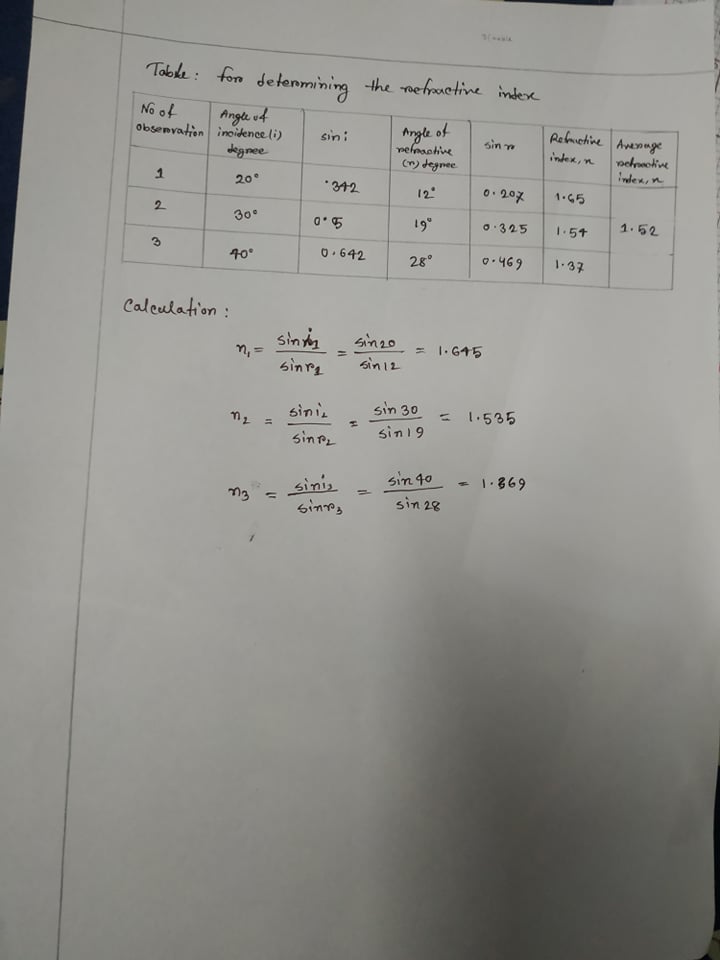 Table: for determining the refractive index
No of observation | Angle of incidence (i) degree | sin i | Angle of refractive (r) degree | sin r | Refractive index, n | Average refractive index, n
1 | 20° | .342 | 12° | 0.207 | 1.65
2 | 30° | 0.5 | 19° | 0.325 | 1.54 | 1.52
3 | 40° | 0.642 | 28° | 0.469 | 1.37
Calculation:
n₁ = sin i₁ / sin r₁ = sin 20 / sin 12 = 1.645
n₂ = sin i₂ / sin r₂ = sin 30 / sin 19 = 1.535
n₃ = sin i₃ / sin r₃ = sin 40 / sin 28 = 1.369